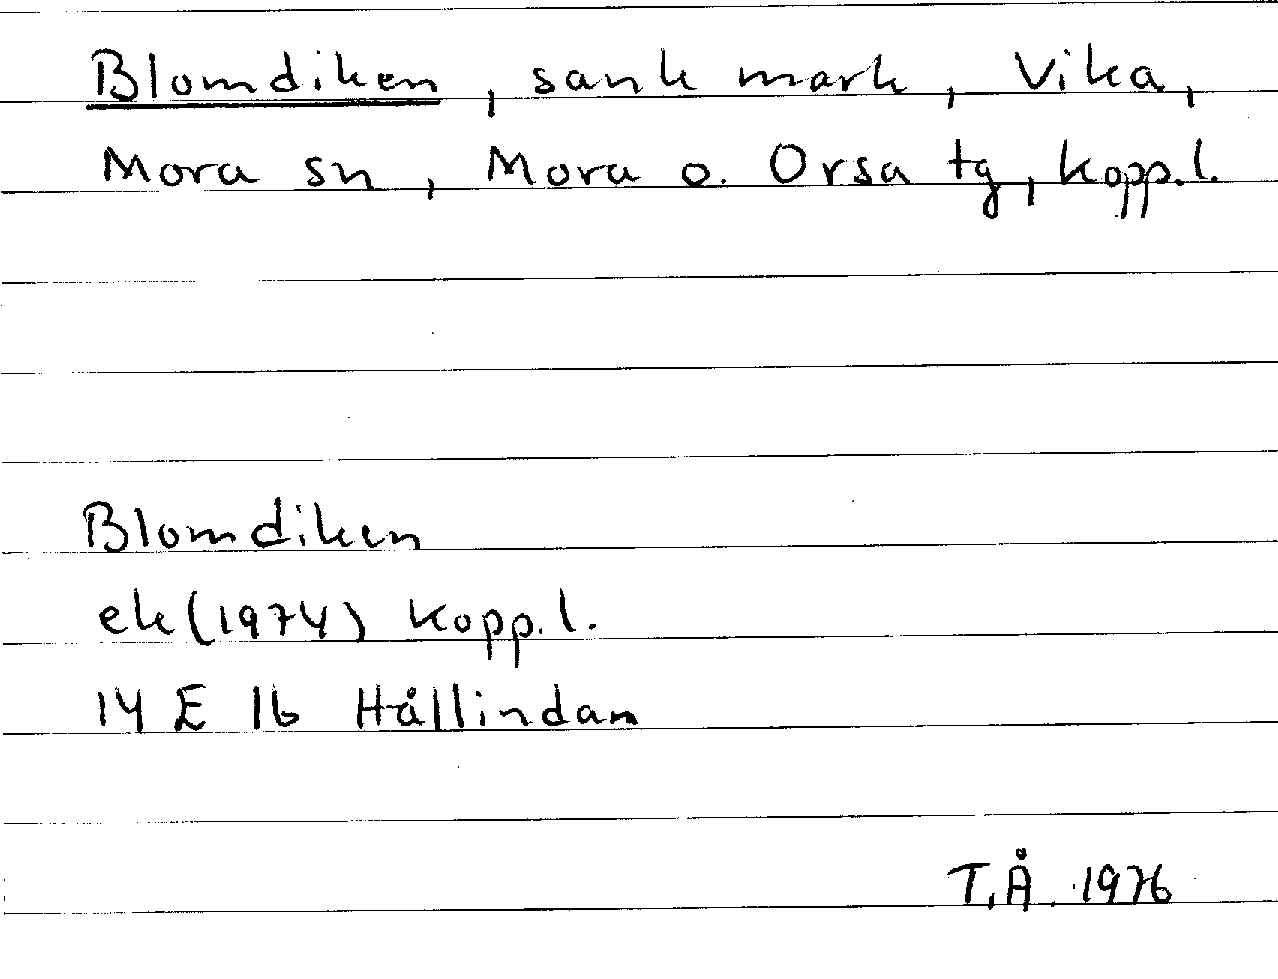 Blomdiken, sank mark, Vika,
Mora sn, Mora o. Orsa tg, Kopp.l.
Blomdiken
ek(1974) Kopp.l.
14 E 1b Hållindan
T.Å. 1976